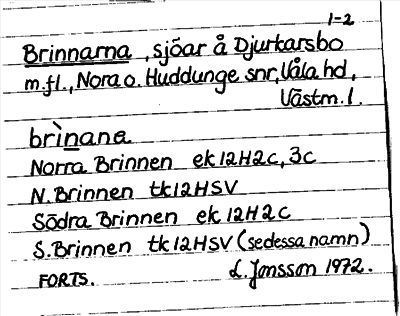 1-2
Brinnarna, sjöar å Djurkarsbo
m.fl., Nora o. Huddunge snr, Våla hd,
Västm. l.
brìnana
Norra Brinnen ek 12H2c, 3c
N. Brinnen tk 12HSV
Södra Brinnen ek 12H2c
S. Brinnen tk 12HSV (se dessa namn)
FORTS. L. Jonsson 1972.